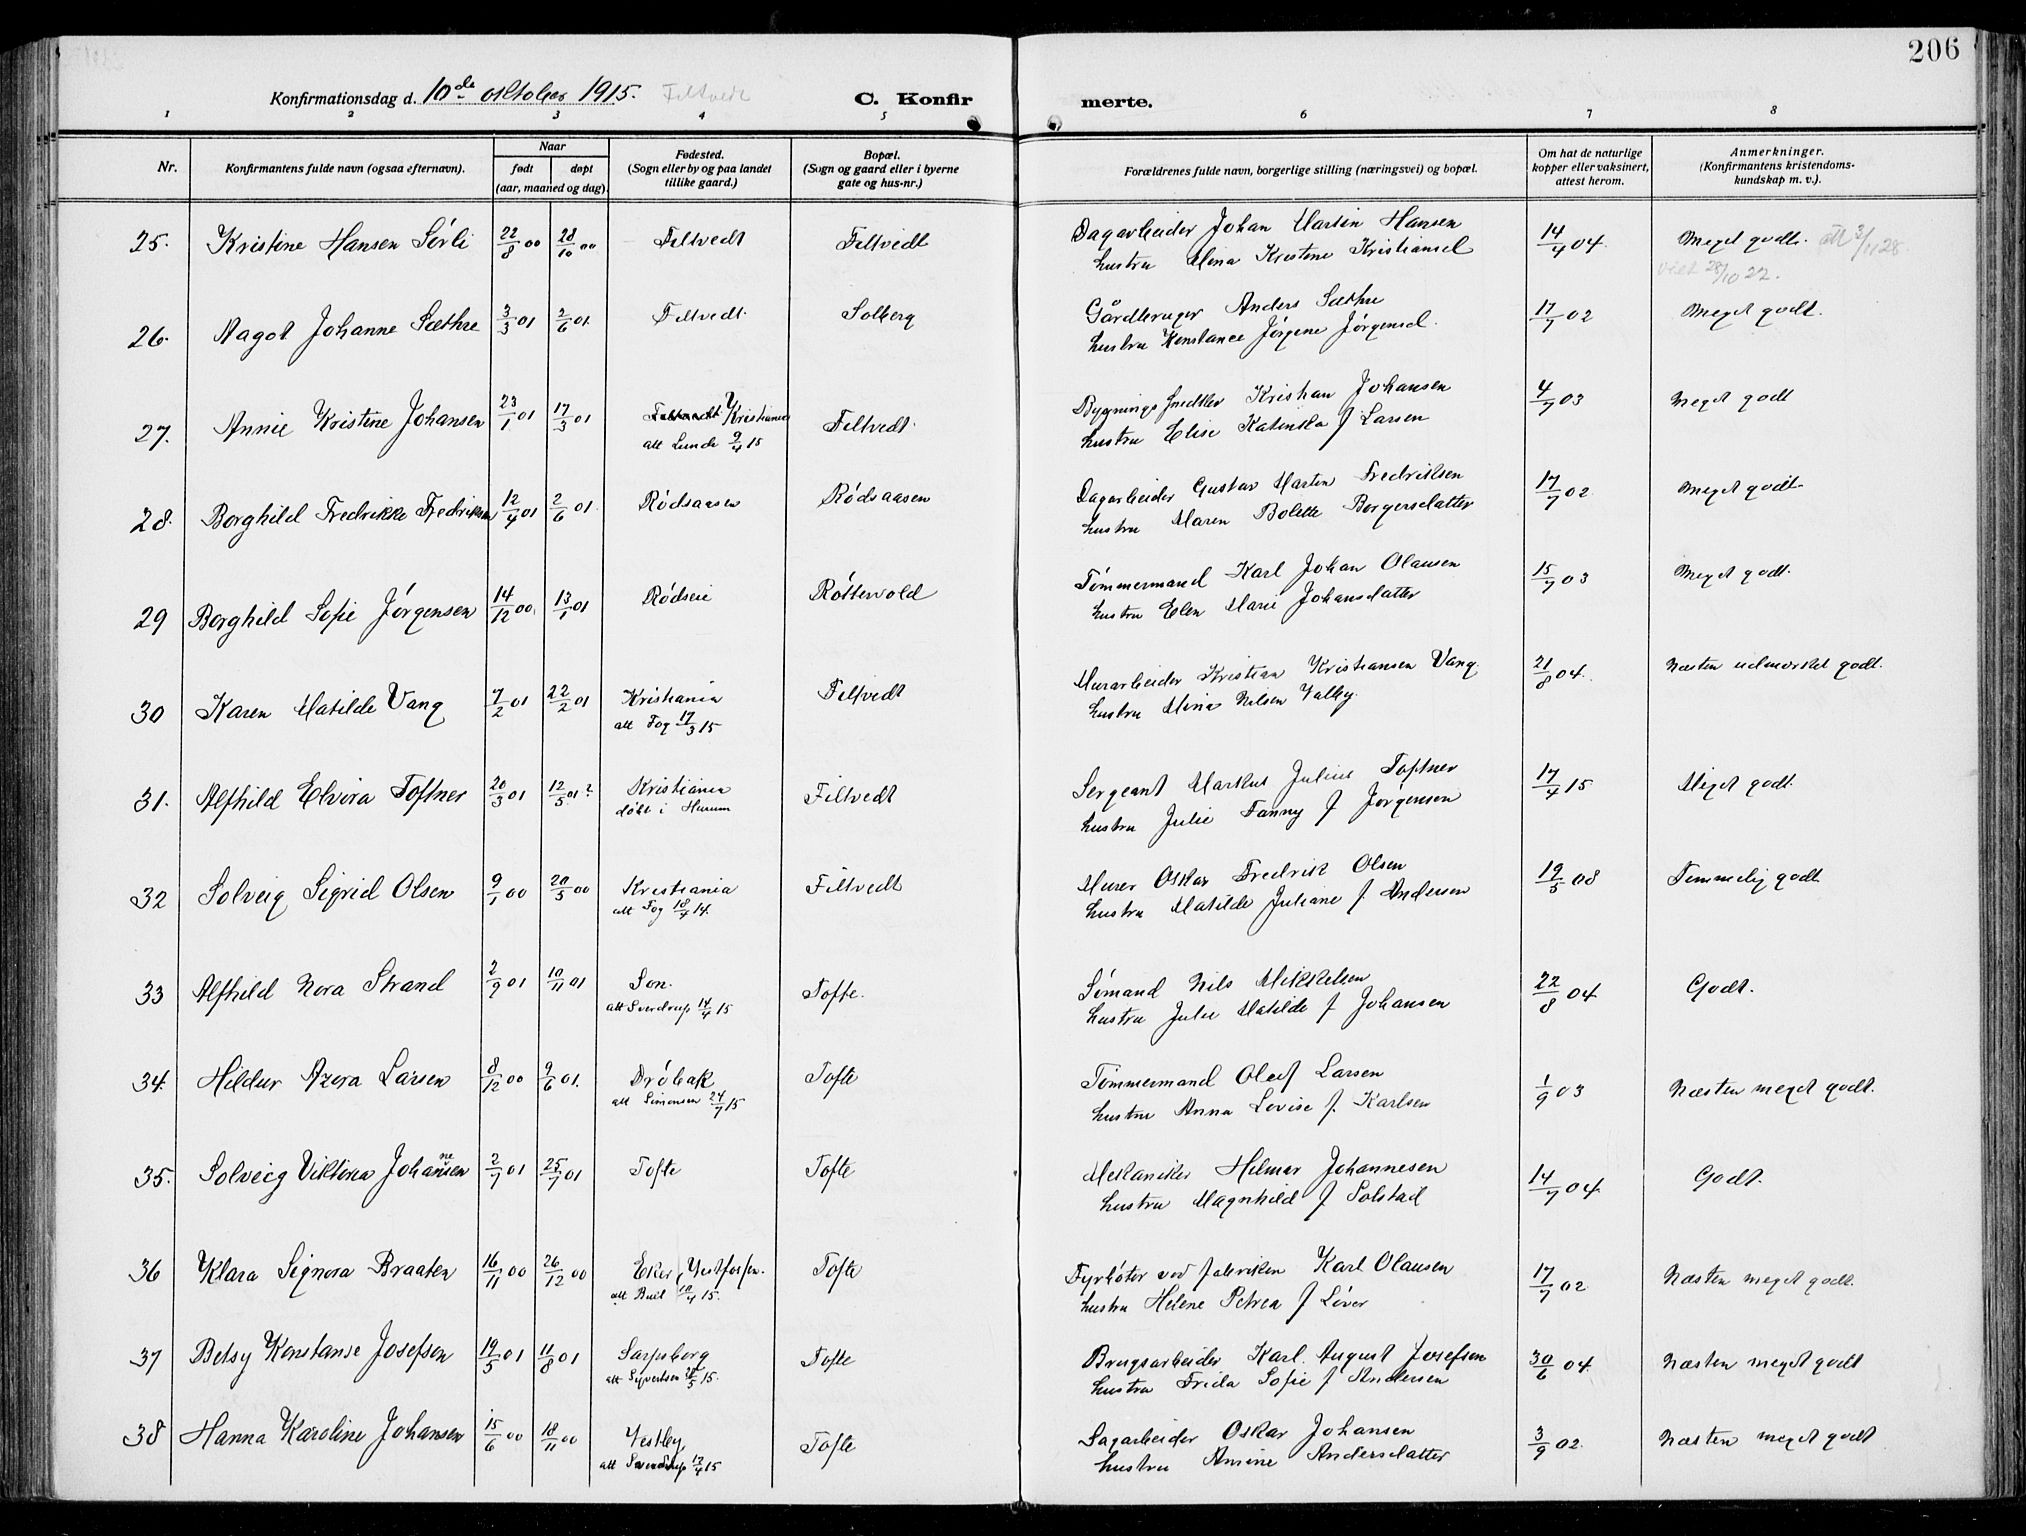 206
Konfirmationsdag d. 10de oktober 1915. Filtvedt
C. Konfir merte.
1 2 3 4 5 6 7 8
Nr. Konfirmantens fulde navn (ogsaa efternavn). Naar født døpt (aar, maaned og dag). Fødested. (Sogn eller by og paa landet tillike gaard.) Bopæl. (Sogn og gaard eller i byerne gate og hus-nr.) Forældrenes fulde navn, borgerlige stilling (næringsvei) og bopæl. Om hat de naturlige kopper eller vaksinert, attest herom. Anmerkninger. (Konfirmantens kristendoms-kundskap m. v.).
25. Kristine Hansen Sørli 22/8 00 28/10 00 Filtvedt Filtvedt Dagarbeider Johan Martin Hansen 14/4 04. Meget godt. att 3/11 28
hustru Mina Kristine Kristiansd viet 28/10 22.
26. Aagot Johanne Sæthre 3/3 01 2/6 01. Filtvedt. Solberg Gårdbruger Anders Sæthre 17/7 02 Meget godt.
hustru Konstance Jørgine Jørgensd.
27. Annie Kristine Johansen 23/1 01 17/3 01 Filtvedt Kristiania Filtvedt. Bygningssnedker Kristian Johansen 4/7 03 Meget godt
att Lunde 9/4 15 hustru Elise Katinka f Larsen
28. Borghild Fredrikke Fredriksen 12/4 01 2/6 01. Rødsaasen Rødsaasen Dagarbeider Gustav Martin Fredriksen 17/7 02 Meget godt.
hustru Maren Bolette Borgersdatter
29 Borghild Sofie Jørgensen 14/12 00. 13/1 01 Rødseie Røttevold Tømmermand Karl Johan Olausen 15/7 03 Meget godt.
hustru Elen Marie Johansdatter
30 Karen Matilde Vang 7/2 01 22/2 01 Kristiania Filtvedt Murarbeider Kristian Kristiansen Vang. 21/8 04. Næsten udmærket godt.
att Fog 17/3 15 hustru Mina Nilsen Valby.
31. Alfhild Elvira Toftner 20/3 01 12/5 01? Kristiania Filtvedt Sergeant Markus Julius Toftner 17/4 15 Meget godt.
døbt i Hurum hustru Julie Fanny f Jørgensen
32 Solveig Sigrid Olsen 9/1 00 20/5 00 Kristiania Filtvedt Murer Oskar Fredrik Olsen 19/5 08 Temmelig godt
att Fog 18/4 14. hustru Matilde Juliane f. Andersen
33 Alfhild Nora Strand 2/9 01 10/11 01 Son. Tofte. Sømand Nils Mikkelsen 22/8 04 Godt.
att Sverdrup 14/4 15 hustru Julie Matilde f Johansen
34. Hildur Azora Larsen 8/12 00 9/6 01. Drøbak Tofte Tømmermand Oluf Larsen 1/9 03 Næsten meget godt.
att Simonsen 24/7 15 hustru Anna Lovise f. Karlsen
35. Solveig Viktoria Johannesen 2/7 01 25/7 01 Tofte Tofte Mekaniker Hilmar Johannesen 14/7 04. Godt.
hustru Magnhild f Solstad
36 Klara Signora Braaten 16/11 00 26/12 00 Eker, Vestfossen. Tofte Fyrbøter ved fabrikken Karl Olausen 17/7 02 Næsten meget godt.
att 10/4 15. hustru Helene Petrea f Løver
37 Betsy Konstanse Josefson 19/5 01 11/8 01 Sarpsborg Tofte Brugsarbeider Karl August Josefson 30/6 04. Næsten meget godt
att Syvertsen 28/5 15. hustru Frida Sofie f Andersen
38 Hanna Karoline Johansen 15/6 00 18/11 00 Vestby Tofte Sagarbeider Oskar Johansen 3/9 02. Næsten meget godt
att Sverdrup 17/4 15 hustru Amine Andersdatter